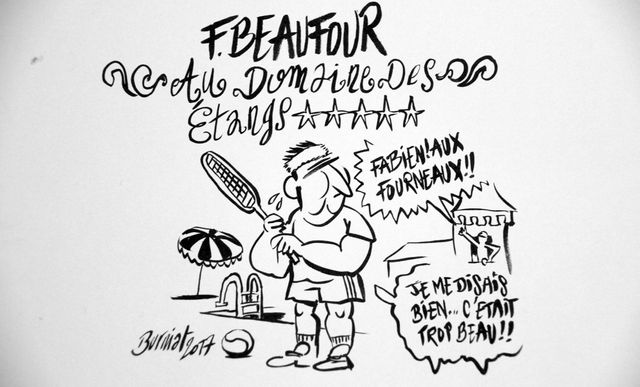 F. BEAUFOUR
AU DOMAINE DES
ÉTANGS
FABIEN! AUX
FOURNEAUX!!
JE ME DISAIS
BIEN... C'ÉTAIT
TROP BEAU!!
Burniat 2017